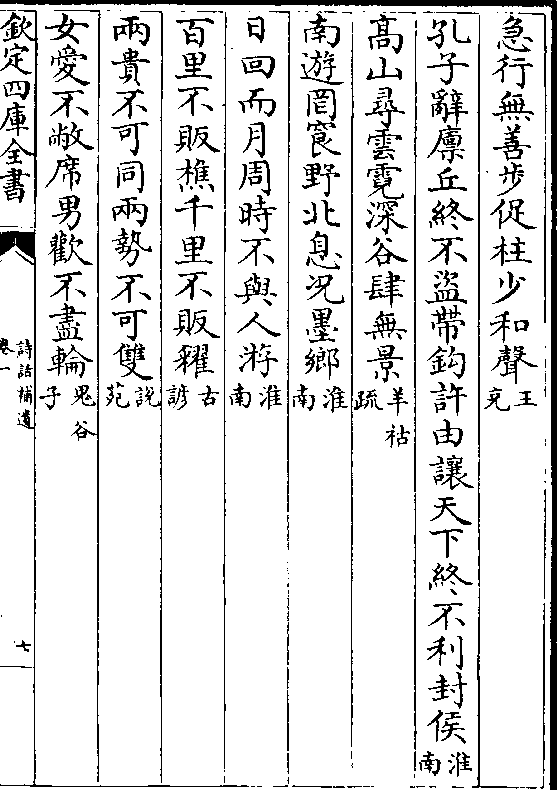 急行無善步促柱少和聲王充
孔子辭廪丘終不盗帶鈎許由讓天下終不利封侯淮南
髙山尋雲霓深谷肆無景羊祜疏
南遊罔㝗野北息况墨鄉淮南
日回而月周時不與人㳺淮南
百里不販樵千里不販糴古諺
兩貴不可同兩勢不可雙說苑
女愛不敝席男歡不盡輪鬼谷子
欽定四庫全書
詩話補遺
卷一
七